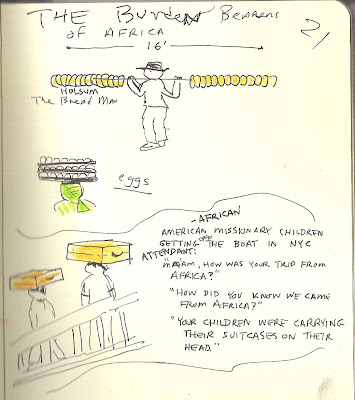 THE Burden BEARERS
OF AFRICA
21
16'
HOLSUM
The Bread Man
eggs
-AFRICAN
AMERICAN MISSIONARY CHILDREN
GETTING OFF THE BOAT IN NYC
ATTENDANT:
"MA'AM, HOW WAS YOUR TRIP FROM
AFRICA?"
"HOW DID YOU KNOW WE CAME
FROM AFRICA?"
"YOUR CHILDREN WERE CARRYING
THEIR SUITCASES ON THEIR
HEAD."